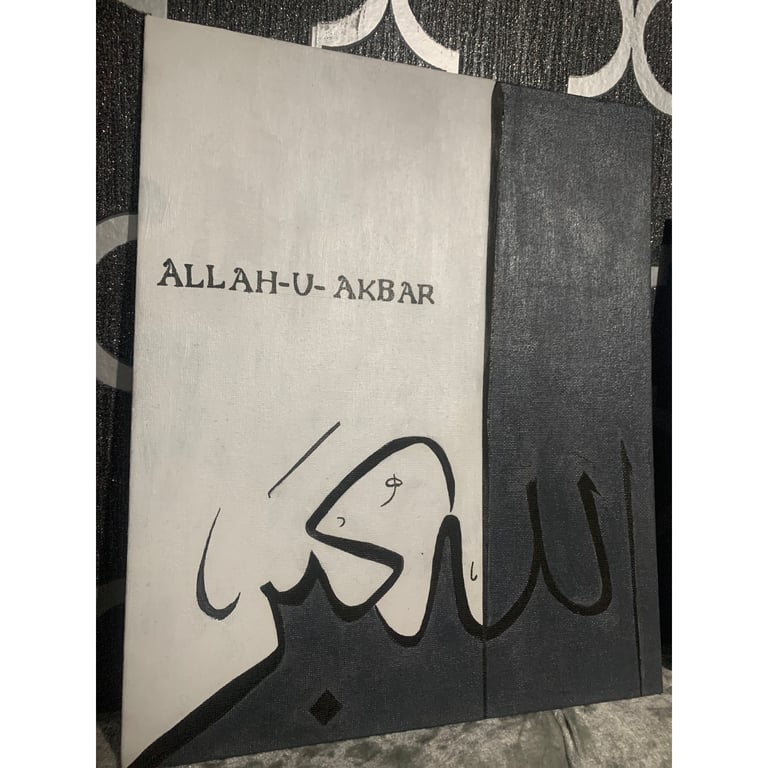 ALLAH-U- AKBAR
الله اكبر